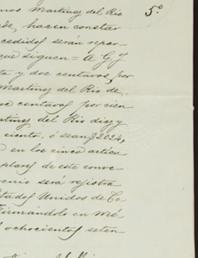 5º
nos Martinez del Rio
de, hacen constar
cedidos serán repar-
que siguen = A G. J.
ta y dos centavos, por
Martinez del Rio de-
ve centavos por cien
tinez del Rio diez y
ciento, ó sean
en los cinco
plares de este conve
enio será
stados Unidos de Co
firmándolo en Mé
ochocientos seten